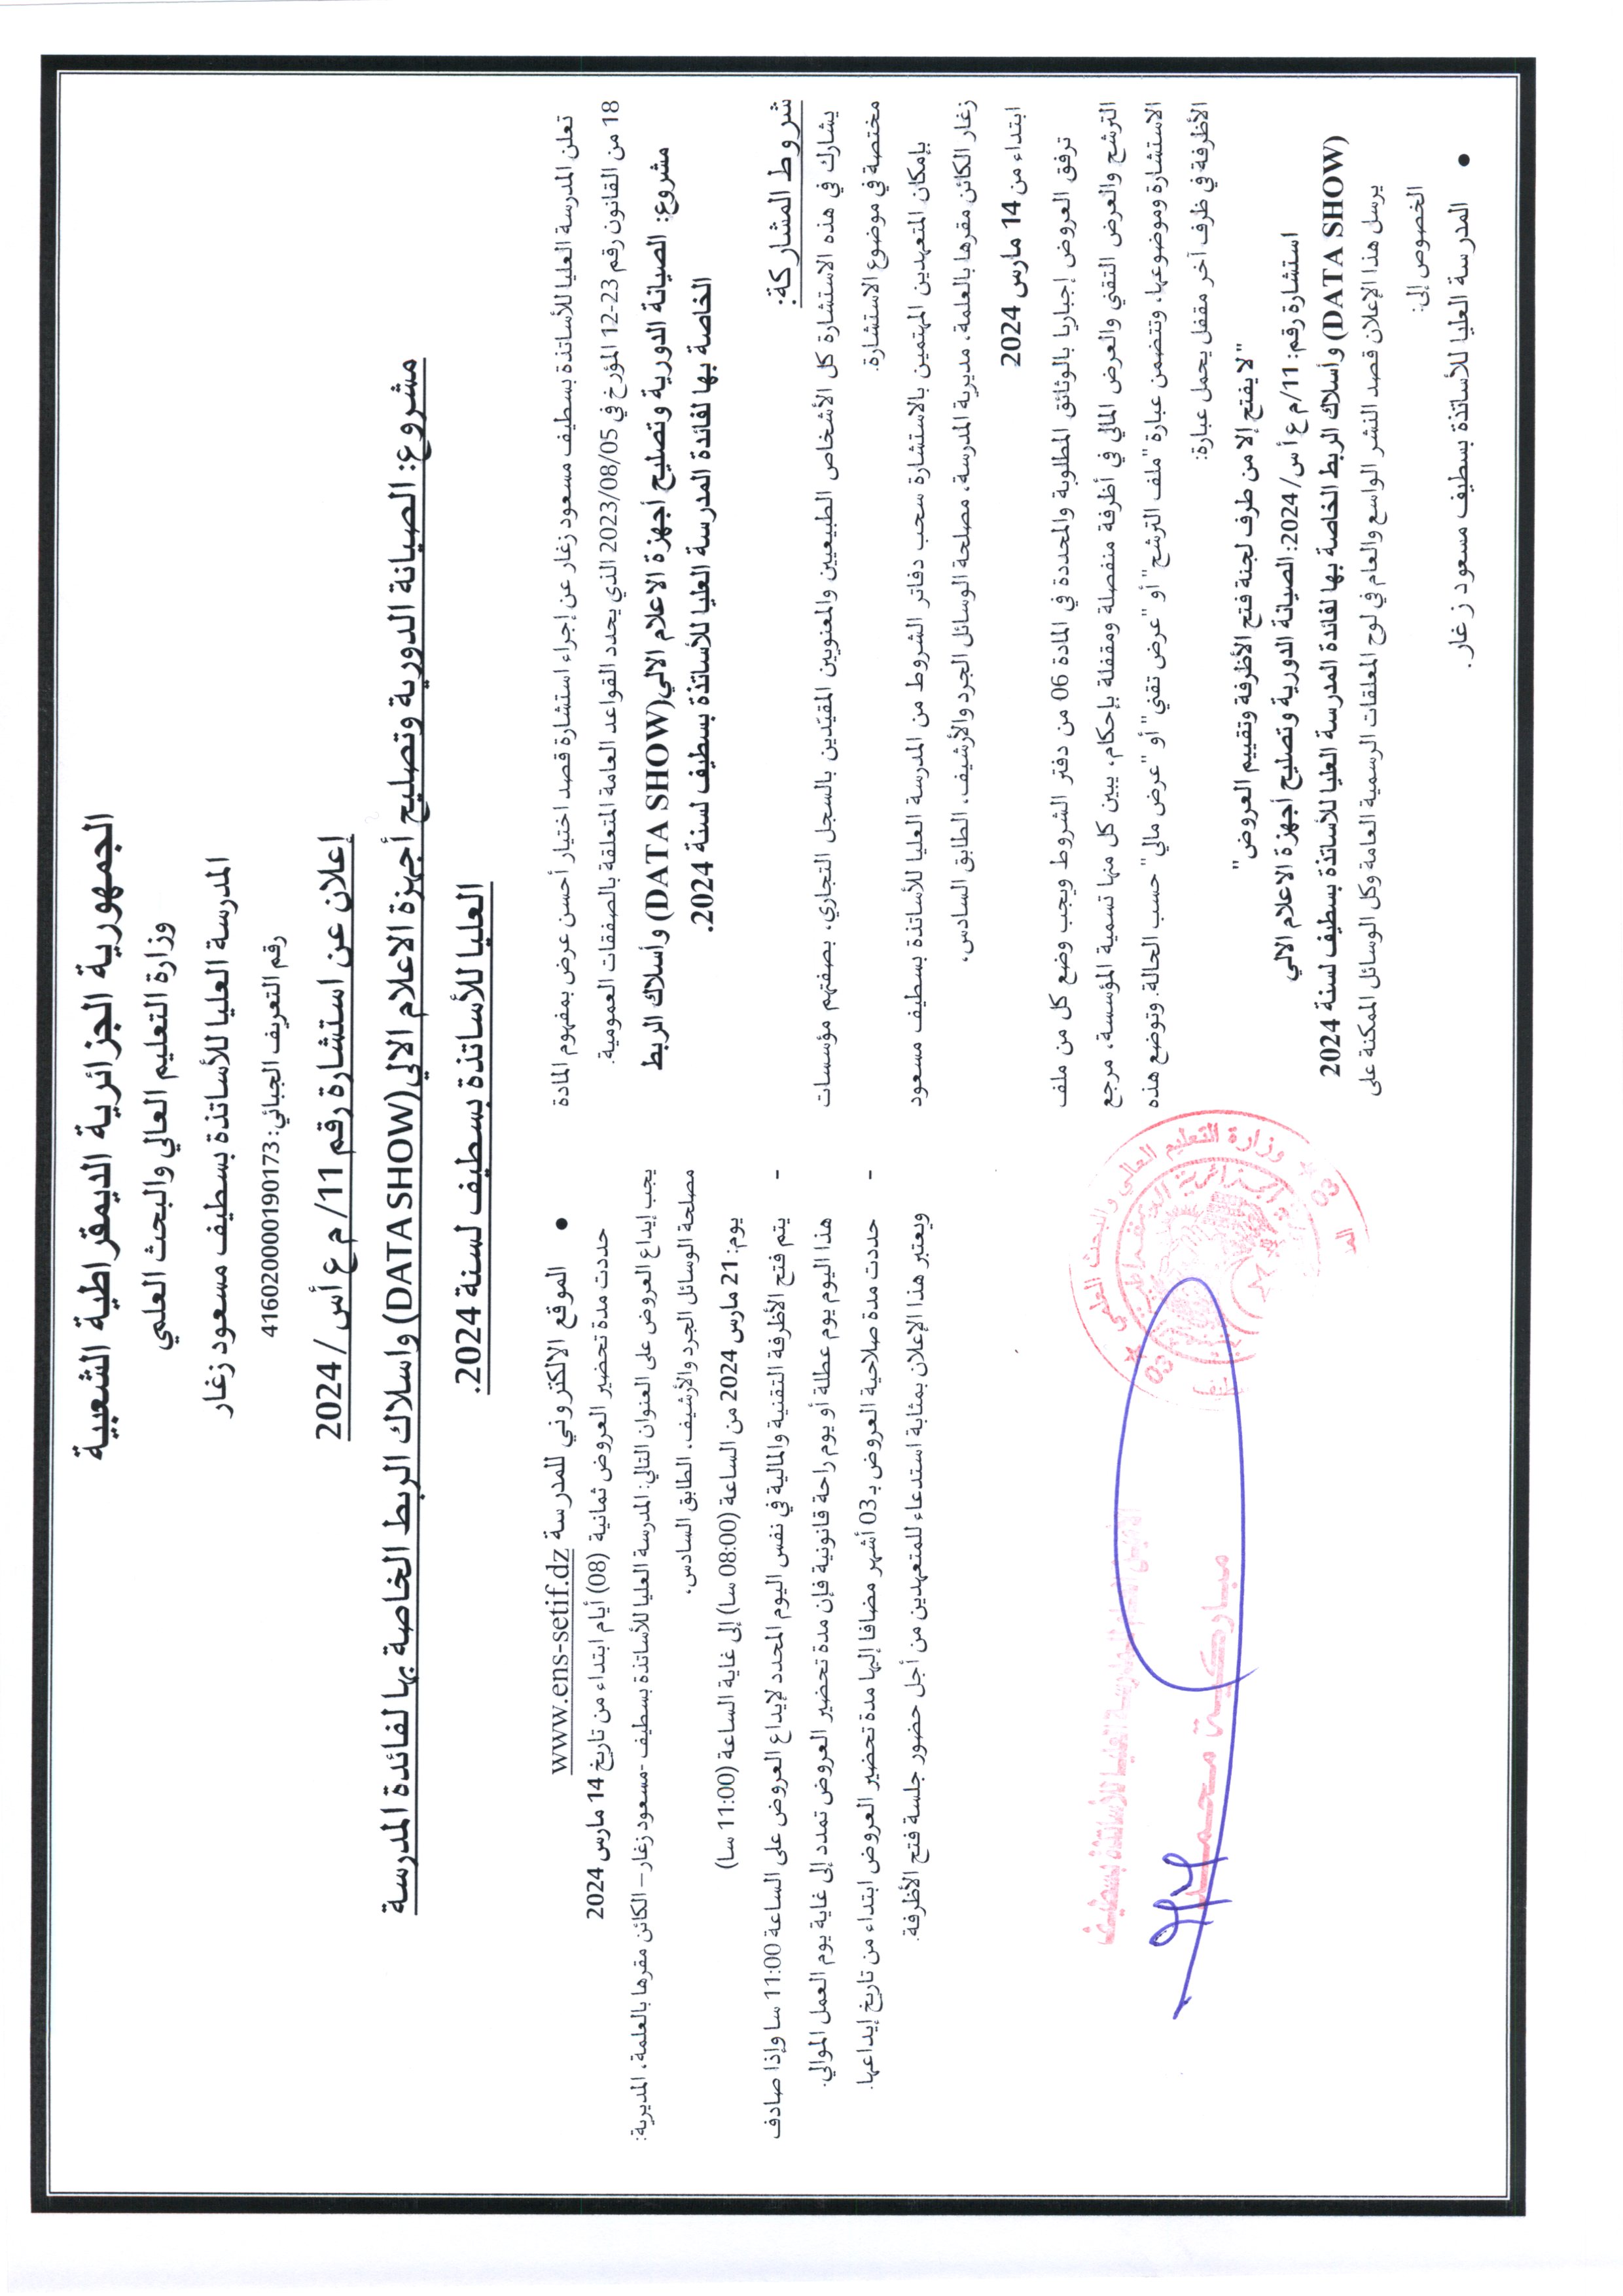 الجمهورية الجزائرية الديمقراطية الشعبية
وزارة التعليم العالي والبحث العلمي
المدرسة العليا للأساتذة بسطيف مسعود زغار
رقم التعريف الجبائي: 416020000190173
إعلان عن استشارة رقم 11/ م ع أس / 2024
مشروع: الصيانة الدورية وتصليح أجهزة الاعلام الالي(DATA SHOW) واسلاك الربط الخاصة بها لفائدة المدرسة
العليا للأساتذة بسطيف لسنة 2024.
تعلن المدرسة العليا للأساتذة بسطيف مسعود زغار عن إجراء استشارة قصد اختيار أحسن عرض بمفهوم المادة
18 من القانون رقم 23-12 المؤرخ في 2023/08/05 الذي يحدد القواعد العامة المتعلقة بالصفقات العمومية.
مشروع: الصيانة الدورية وتصليح أجهزة الاعلام الالي(DATA SHOW) وأسلاك الربط
الخاصة بها لفائدة المدرسة العليا للأساتذة بسطيف لسنة 2024.
شروط المشاركة:
يشارك في هذه الاستشارة كل الأشخاص الطبيعيين والمعنويين المقيّدين بالسجل التجاري، بصفتهم مؤسسات
مختصة في موضوع الاستشارة.
بإمكان المتعهدين المهتمين بالاستشارة سحب دفاتر الشروط من المدرسة العليا للأساتذة بسطيف مسعود
زغار الكائن مقرها بالعلمة، مديرية المدرسة، مصلحة الوسائل الجرد والأرشيف، الطابق السادس،
ابتداء من 14 مارس 2024
ترفق العروض إجباريا بالوثائق المطلوبة والمحددة في المادة 06 من دفتر الشروط ويجب وضع كل من ملف
الترشح والعرض التقني والعرض المالي في أظرفة منفصلة ومقفلة بإحكام، يبين كل منها تسمية المؤسسة، مرجع
الاستشارة وموضوعها، وتتضمن عبارة "ملف الترشح" أو "عرض تقني" أو "عرض مالي" حسب الحالة. وتوضع هذه
الأظرفة في ظرف آخر مقفل يحمل عبارة:
"لا يفتح إلا من طرف لجنة فتح الأظرفة وتقييم العروض"
استشارة رقم: 11/م ع أس/ 2024: الصيانة الدورية وتصليح أجهزة الاعلام الالي
(DATA SHOW) وأسلاك الربط الخاصة بها لفائدة المدرسة العليا للأساتذة بسطيف لسنة 2024
يرسل هذا الإعلان قصد النشر الواسع والعام في لوح المعلقات الرسمية العامة وكل الوسائل الممكنة على
الخصوص إلى:
• المدرسة العليا للأساتذة بسطيف مسعود زغار.
• الموقع الالكتروني للمدرسة www.ens-setif.dz
حددت مدة تحضير العروض ثمانية (08) أيام ابتداء من تاريخ 14 مارس 2024
يجب إيداع العروض على العنوان التالي: المدرسة العليا للأساتذة بسطيف -مسعود زغار– الكائن مقرها بالعلمة، المديرية:
مصلحة الوسائل الجرد والأرشيف، الطابق السادس،
يوم: 21 مارس 2024 من الساعة (08:00 سا) إلى غاية الساعة (11:00 سا)
- يتم فتح الأظرفة التقنية والمالية في نفس اليوم المحدد لإيداع العروض على الساعة 11:00 سا وإذا صادف
هذا اليوم يوم عطلة أو يوم راحة قانونية فإن مدة تحضير العروض تمدد إلى غاية يوم العمل الموالي.
- حددت مدة صلاحية العروض بـ03 أشهر مضافا إليها مدة تحضير العروض ابتداء من تاريخ إيداعها.
ويعتبر هذا الإعلان بمثابة استدعاء للمتعهدين من أجل حضور جلسة فتح الأظرفة.
وزارة التعليم العالي والبحث العلمي
03
03